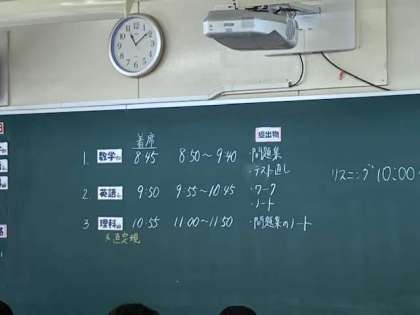 着席
提出物
1. 数学 8:45 8:50～9:40 ・問題集
・テスト直し
リスニング 10:00～
2. 英語 9:50 9:55～10:45 ・ワーク
・ノート
3. 理科 10:55 11:00～11:50 ・問題集のノート
※直定規